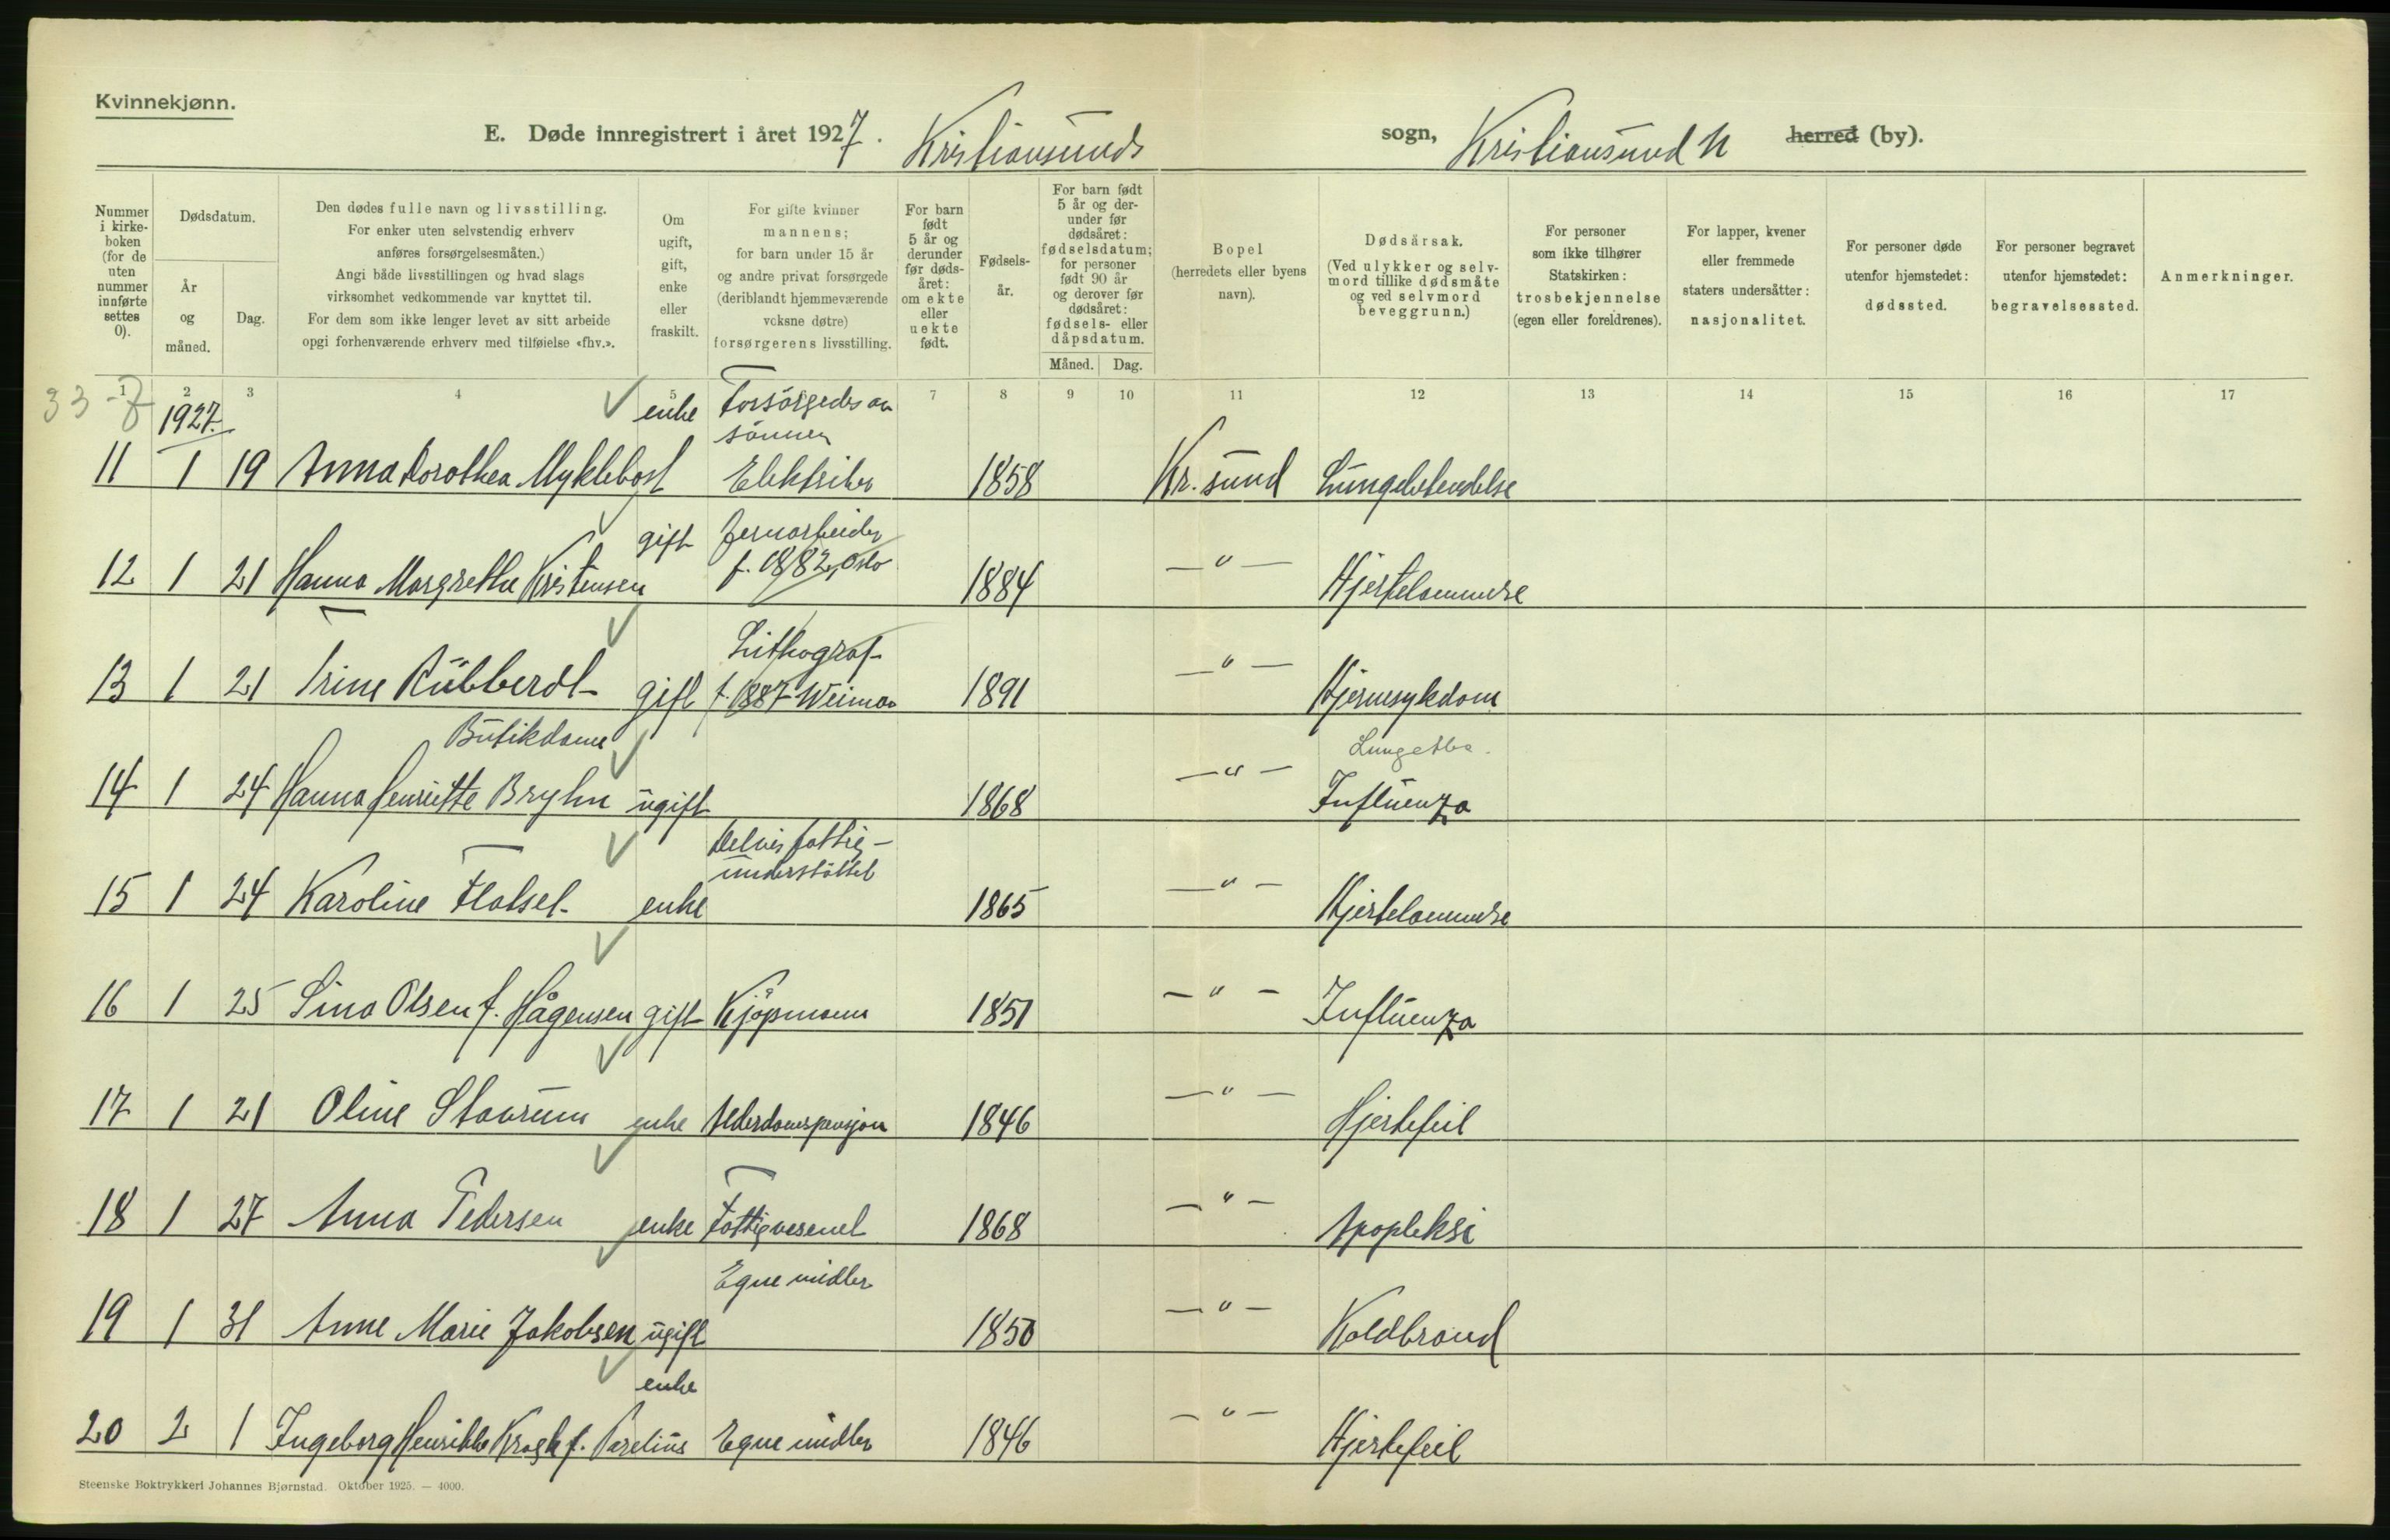 Kvinnekjønn.
E. Døde innregistrert i året 1927. Kristiansunds sogn, Kristiansund N herred (by).
Nummer i kirkeboken (for de uten nummer innførte settes 0).
Dødsdatum.
År og måned.
Dag.
Den dødes fulle navn og livsstilling.
For enker uten selvstendig erhverv
anføres forsørgelsesmåten.)
Angi både livsstillingen og hvad slags
virksomhet vedkommende var knyttet til.
For dem som ikke lenger levet av sitt arbeide
opgi forhenværende erhverv med tilføielse «fhv.».
Om ugift, gift, enke eller fraskilt.
For gifte kvinner
mannens;
for barn under 15 år
og andre privat forsørgede
(deriblandt hjemmeværende
voksne døtre)
forsørgerens livsstilling.
For barn født 5 år og derunder før dødsåret: om ekte eller uekte født.
Fødselsår.
For barn født 5 år og derunder før dødsåret: fødselsdatum; for personer født 90 år og derover før dødsåret: fødsels- eller dåpsdatum.
Måned. Dag.
Bopel
(herredets eller byens
navn).
Dødsårsak.
(Ved ulykker og selv-
mord tillike dødsmåte
og ved selvmord
beveggrunn.)
For personer
som ikke tilhører
Statskirken:
trosbekjennelse
(egen eller foreldrenes).
For lapper, kvener
eller fremmede
staters undersåtter:
nasjonalitet.
For personer døde
utenfor hjemstedet:
dødssted.
For personer begravet
utenfor hjemstedet:
begravelsessted.
Anmerkninger.
33-7
1 2 3 4 5 7 8 9 10 11 12 13 14 15 16 17
1927.
enke Forsörgedes av
sönnen
11 1 19 Anna Dorothea Myklebost Elektriker 1858 Kr. sund Lungebetendelse
gift Jernarbeider
12 1 21 Hanna Margrethe Kristensen f. 1882, Oslo 1884 — " — Hjertelammelse
Lithograf
13 1 21 Trine Rübberdt gift f. 1887 Weimar 1891 — " — Hjernesykdom
Butikdame Lungetbc.
14 1 24 Hanna Henriette Bryhn ugift 1868 — " — Influenza
Delvis fattig-
understöttet
15 1 24 Karoline Flatset enke 1865 — " — Hjertelammelse
16 1 25 Sina Olsen f. Hågensen gift Kjöpmann 1851 — " — Influenza
17 1 21 Oline Stavrum enke Alderdomspensjon 1846 — " — Hjertefeil
18 1 27 Anna Pedersen enke Fattigvesenet 1868 — " — Apopleksi
Egne midler
19 1 31 Anne Marie Jakobsen ugift 1850 — " — Koldbrand
enke
20 2 1 Ingeborg Henrikke Krogh f. Parelius Egne midler 1846 — " — Hjertefeil
Steenske Boktrykkeri Johannes Bjørnstad. Oktober 1925. — 4000.